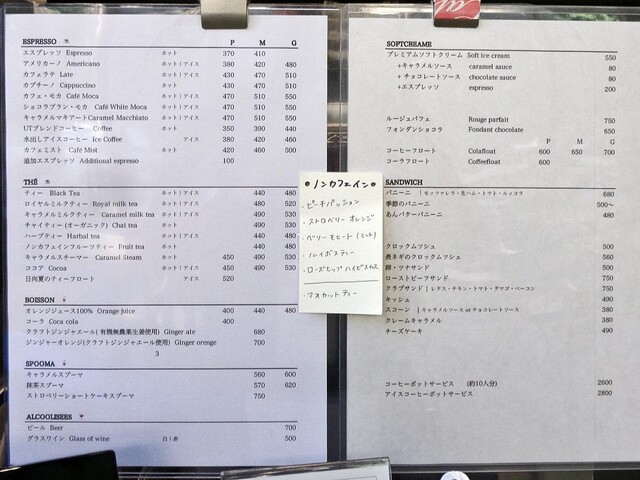 ESPRESSO P M G
エスプレッソ Espresso ホット 370 410
アメリカーノ Americano ホット | アイス 380 420 480
カフェラテ Late ホット | アイス 430 470 510
カプチーノ Cappuccino ホット 430 470 510
カフェ・モカ Café Moca ホット | アイス 470 510 550
ショコラブラン・モカ Café White Moca ホット | アイス 470 510 550
キャラメルマキアート Caramel Macchiato ホット | アイス 470 510 550
UTブレンドコーヒー Coffee ホット 350 390 440
水出しアイスコーヒー Ice Coffee アイス 380 420 460
カフェミスト Café Mist ホット 420 460 500
追加エスプレッソ Additional espresso 100
THÉ
ティー Black Tea ホット | アイス 440 480
ロイヤルミルクティー Royal milk tea ホット | アイス 480 520
キャラメルミルクティー Caramel milk tea ホット | アイス 490 530
チャイティー (オーガニック) Chai tea ホット | アイス 490 530
ハーブティー Harbal tea ホット | アイス 440 480
ノンカフェインフルーツティー Fruit tea ホット 440 480
キャラメルスチーマー Caramel Steam ホット 450 490 530
ココア Cocoa ホット | アイス 450 490 530
日向夏のティーフロート アイス 520
BOISSON
オレンジジュース100% Orange juice 400 440 480
コーラ Coca cola 400
クラフトジンジャエール( 有機無農薬生姜使用) Ginger ale 680
ジンジャーオレンジ(クラフトジンジャエール使用) Ginger orenge 700
3
SPOOMA
キャラメルスプーマ 560 600
抹茶スプーマ 570 620
ストロベリーショートケーキスプーマ 750
ALCOOLISEES
ビール Beer 700
グラスワイン Glass of wine 白 | 赤 500
ノンカフェイン
・ピーチパッション
・ストロベリー オレンジ
・ベリー モヒート (ミント)
・ルイボスティー
・ローズヒップ ハイビスカス
・マスカットティー
SOFTCREAME
プレミアムソフトクリーム Soft Ice cream 550
+キャラメルソース caramel sauce 80
+チョコレートソース chocolate sauce 80
+エスプレッソ espresso 200
ルージュパフェ Rouge parfait 750
フォンダンショコラ Fondant chocolate 650
P M G
コーヒーフロート Colafloat 600 650 700
コーラフロート Coffeefloat 600
SANDWICH
パニーニ | モッツァレラ・生ハム・トマト・ルッコラ 680
季節のパニーニ 500～
あんバターパニーニ 480
クロックムッシュ 500
長ネギのクロックムッシュ 550
卵・ツナサンド 500
ローストビーフサンド 750
クラブサンド | レタス・チキン・トマト・タマゴ・ベーコン 750
キッシュ 490
スコーン | キャラメルソース or チョコレートソース 380
クレームキャラメル 380
チーズケーキ 490
コーヒーポットサービス (約10人分) 2600
アイスコーヒーポットサービス 2800